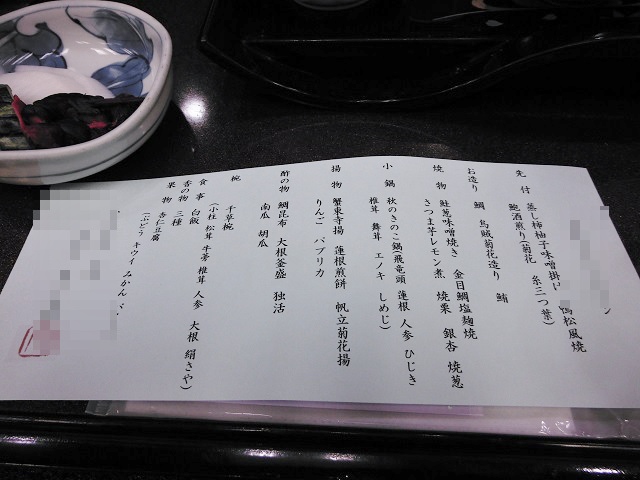 先付 蒸し柿柚子味噌掛け 鴨松風焼
鮑酒煎り(菊花 糸三つ葉)
お造り 鯛 烏賊菊花造り 鮪
焼物 鮭葱味噌焼き 金目鯛塩麹焼
さつま芋レモン煮 焼栗 銀杏 焼葱
小鍋 秋のきのこ鍋(飛竜頭 蓮根 人参 ひじき
椎茸 舞茸 エノキ しめじ)
揚物 蟹東寺揚 蓮根煎餅 帆立菊花揚
りんご パプリカ
酢の物 鯛昆布 大根釜盛 独活
南瓜 胡瓜
椀 千草椀
(小柱 松茸 牛蒡 椎茸 人参 大根 絹さや)
食事 白飯
香の物 三種
果物 杏仁豆腐
キウイ みかん